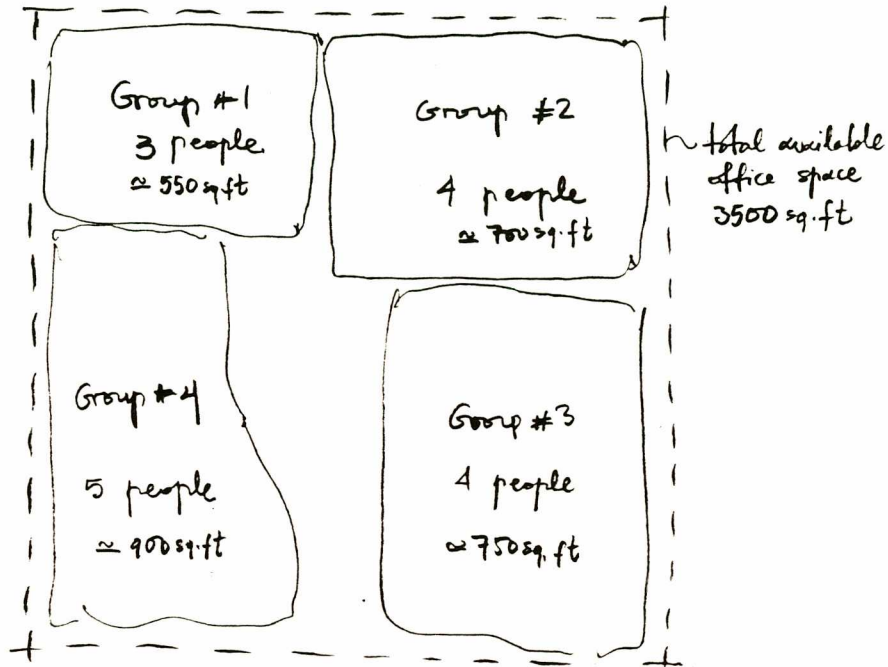 Group #1
3 people
≃ 550 sq.ft
Group #2
4 people
≃ 700 sq.ft
total available
office space
3500 sq.ft
Group #4
5 people
≃ 900 sq.ft
Group #3
4 people
≃ 750 sq.ft